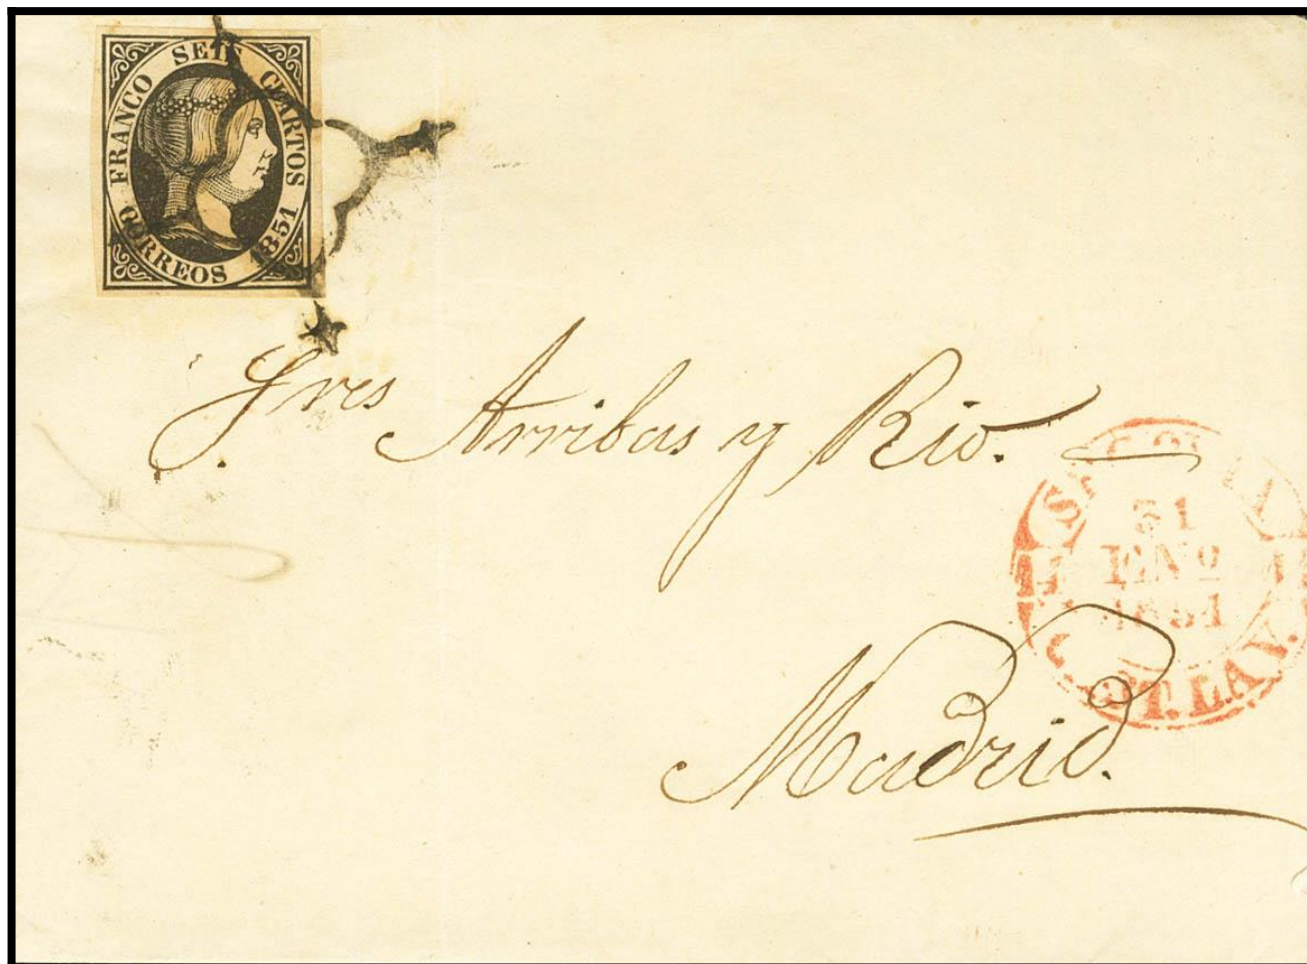 FRANCO SEIS CUARTOS
CORREOS 1851
Sres Arribas y Rio.
31
ENO
1851
T.LA V.
Madrid.